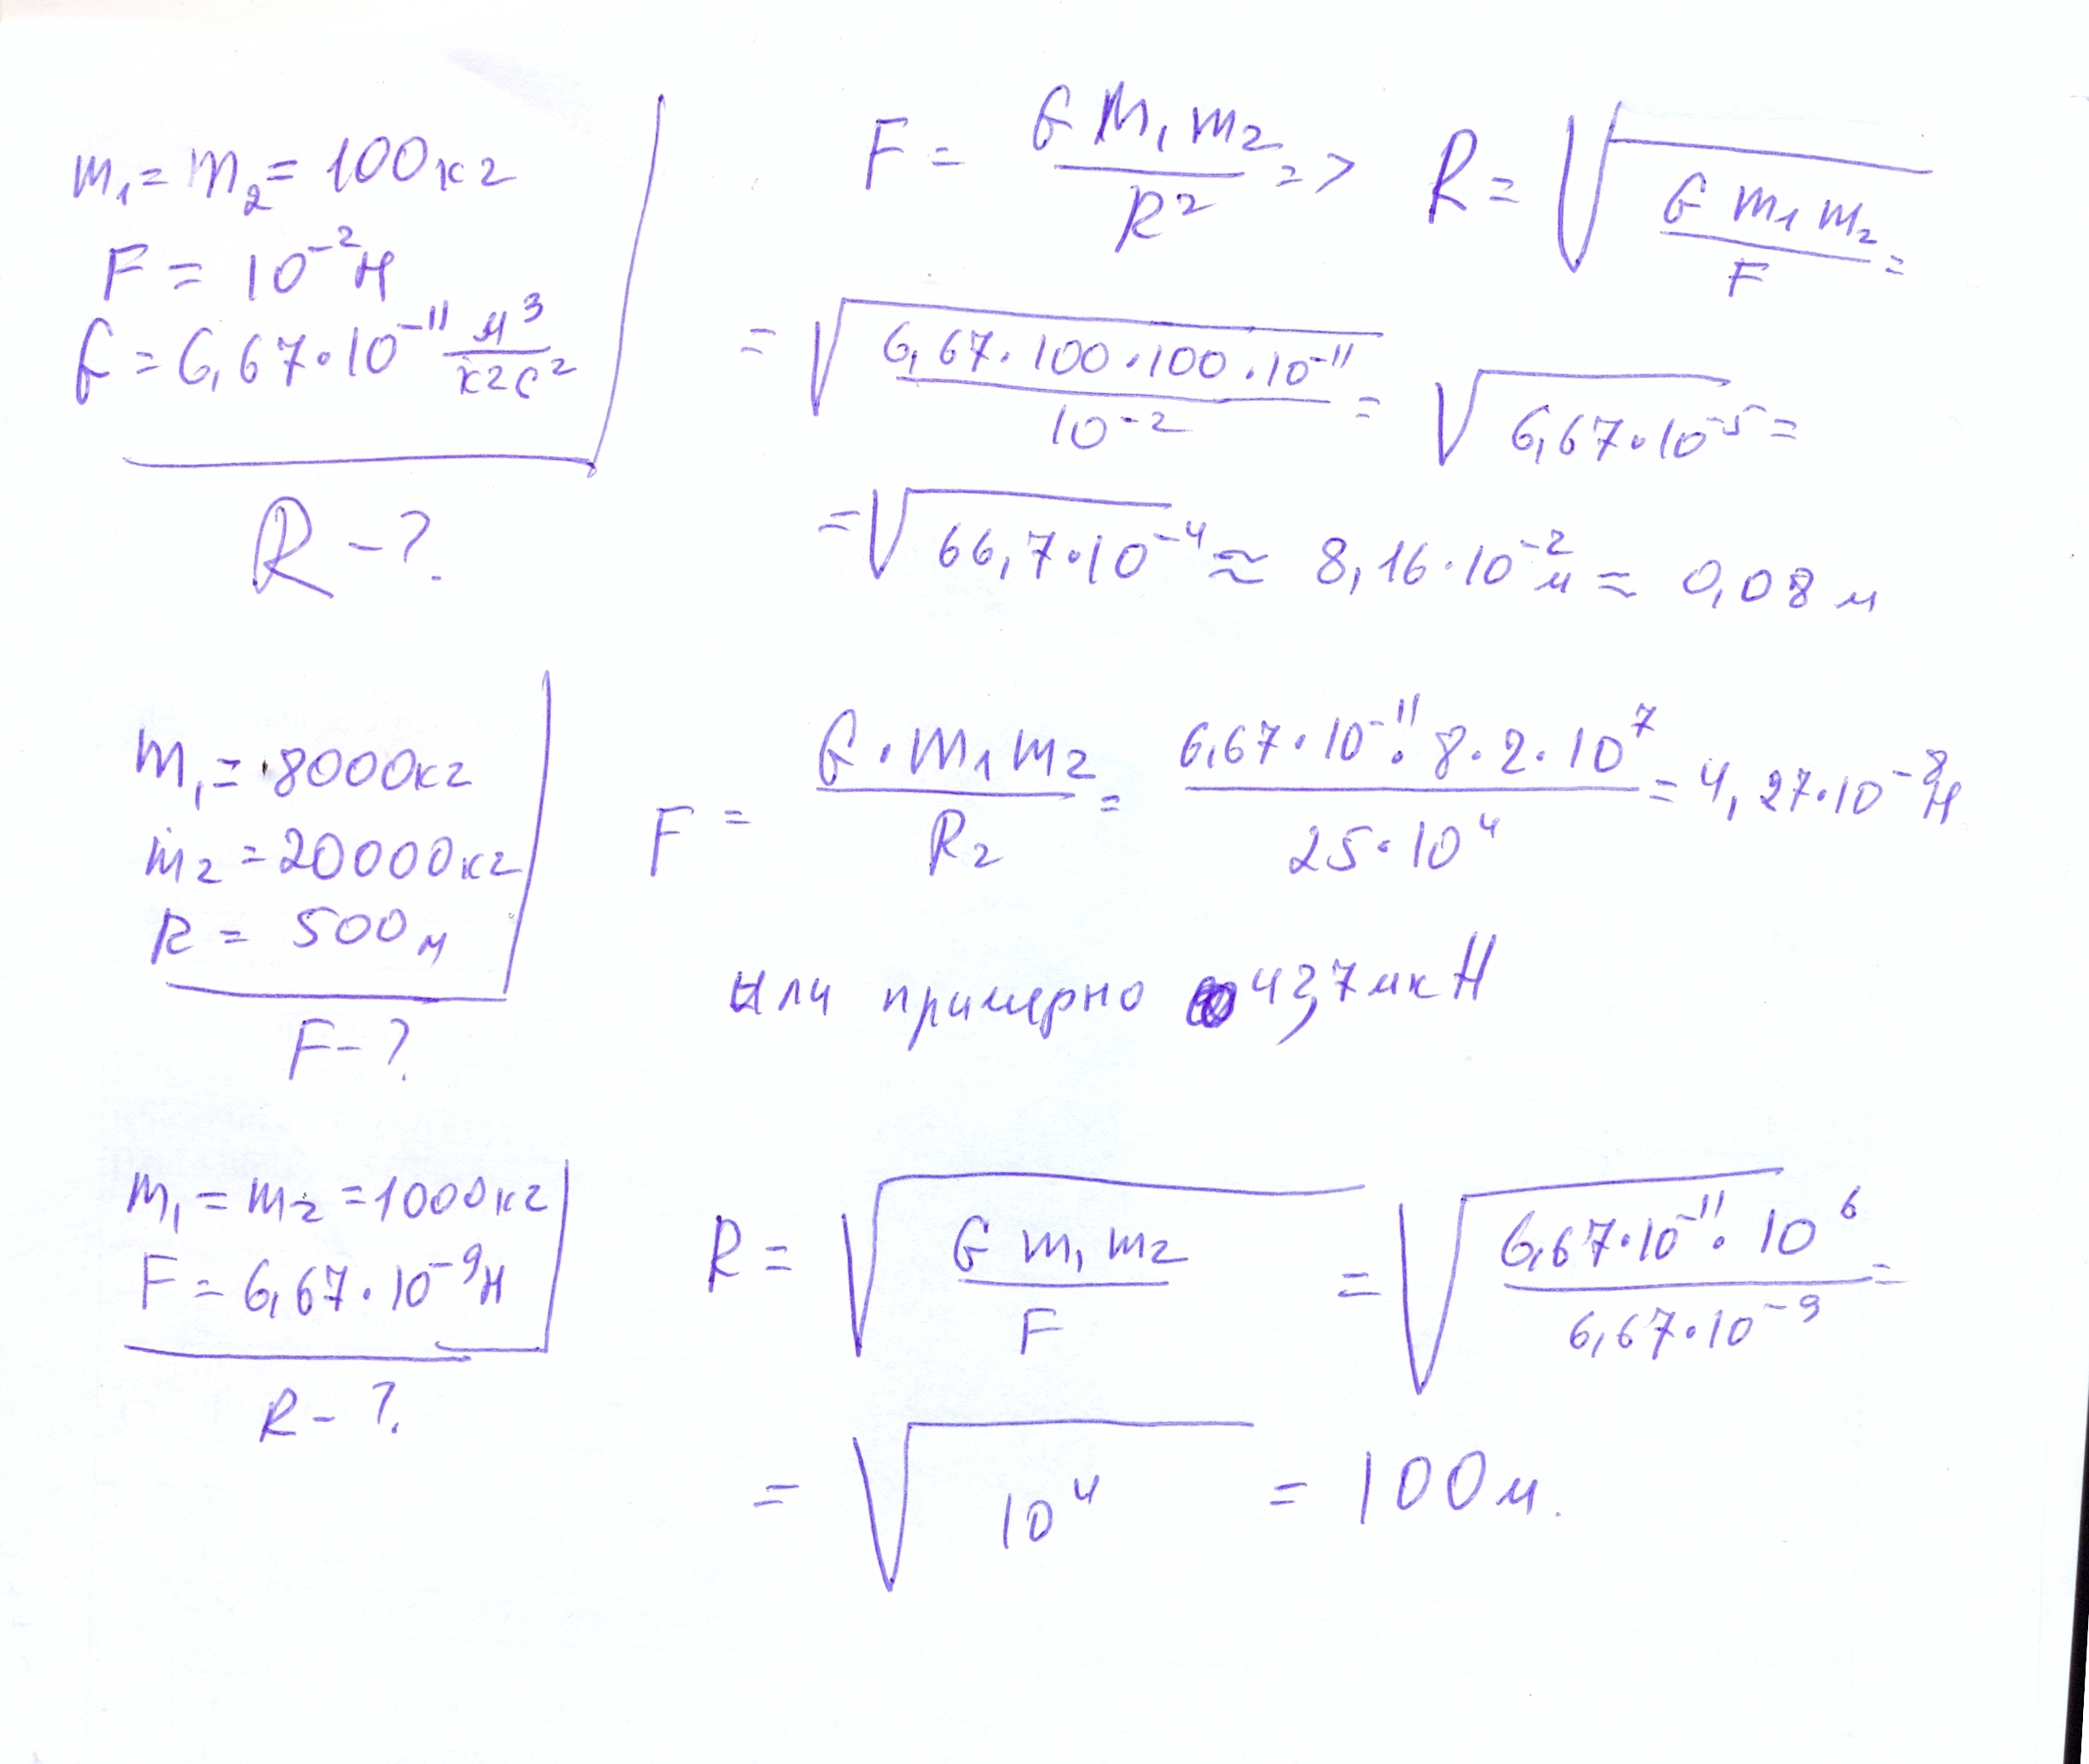 m₁ = m₂ = 100кг
F = 10⁻² Н
G = 6,67·10⁻¹¹ м³/кгс²
R - ?
F = G m₁ m₂ / R² => R = √(G m₁ m₂ / F) =
= √(6,67·100·100·10⁻¹¹ / 10⁻²) = √(6,67·10⁻⁵) =
= √(66,7·10⁻⁴) ≈ 8,16·10⁻² м = 0,08 м
m₁ = 8000кг
m₂ = 20000кг
R = 500м
F - ?
F = G·m₁ m₂ / R₂ = 6,67·10⁻¹¹·8·2·10⁷ / 25·10⁴ = 4,27·10⁻⁸ Н
или примерно 42,7 мкН
m₁ = m₂ = 1000кг
F = 6,67·10⁻⁹ Н
R - ?
R = √(G m₁ m₂ / F) = √(6,67·10⁻¹¹·10⁶ / 6,67·10⁻⁹) =
= √(10⁴) = 100м.